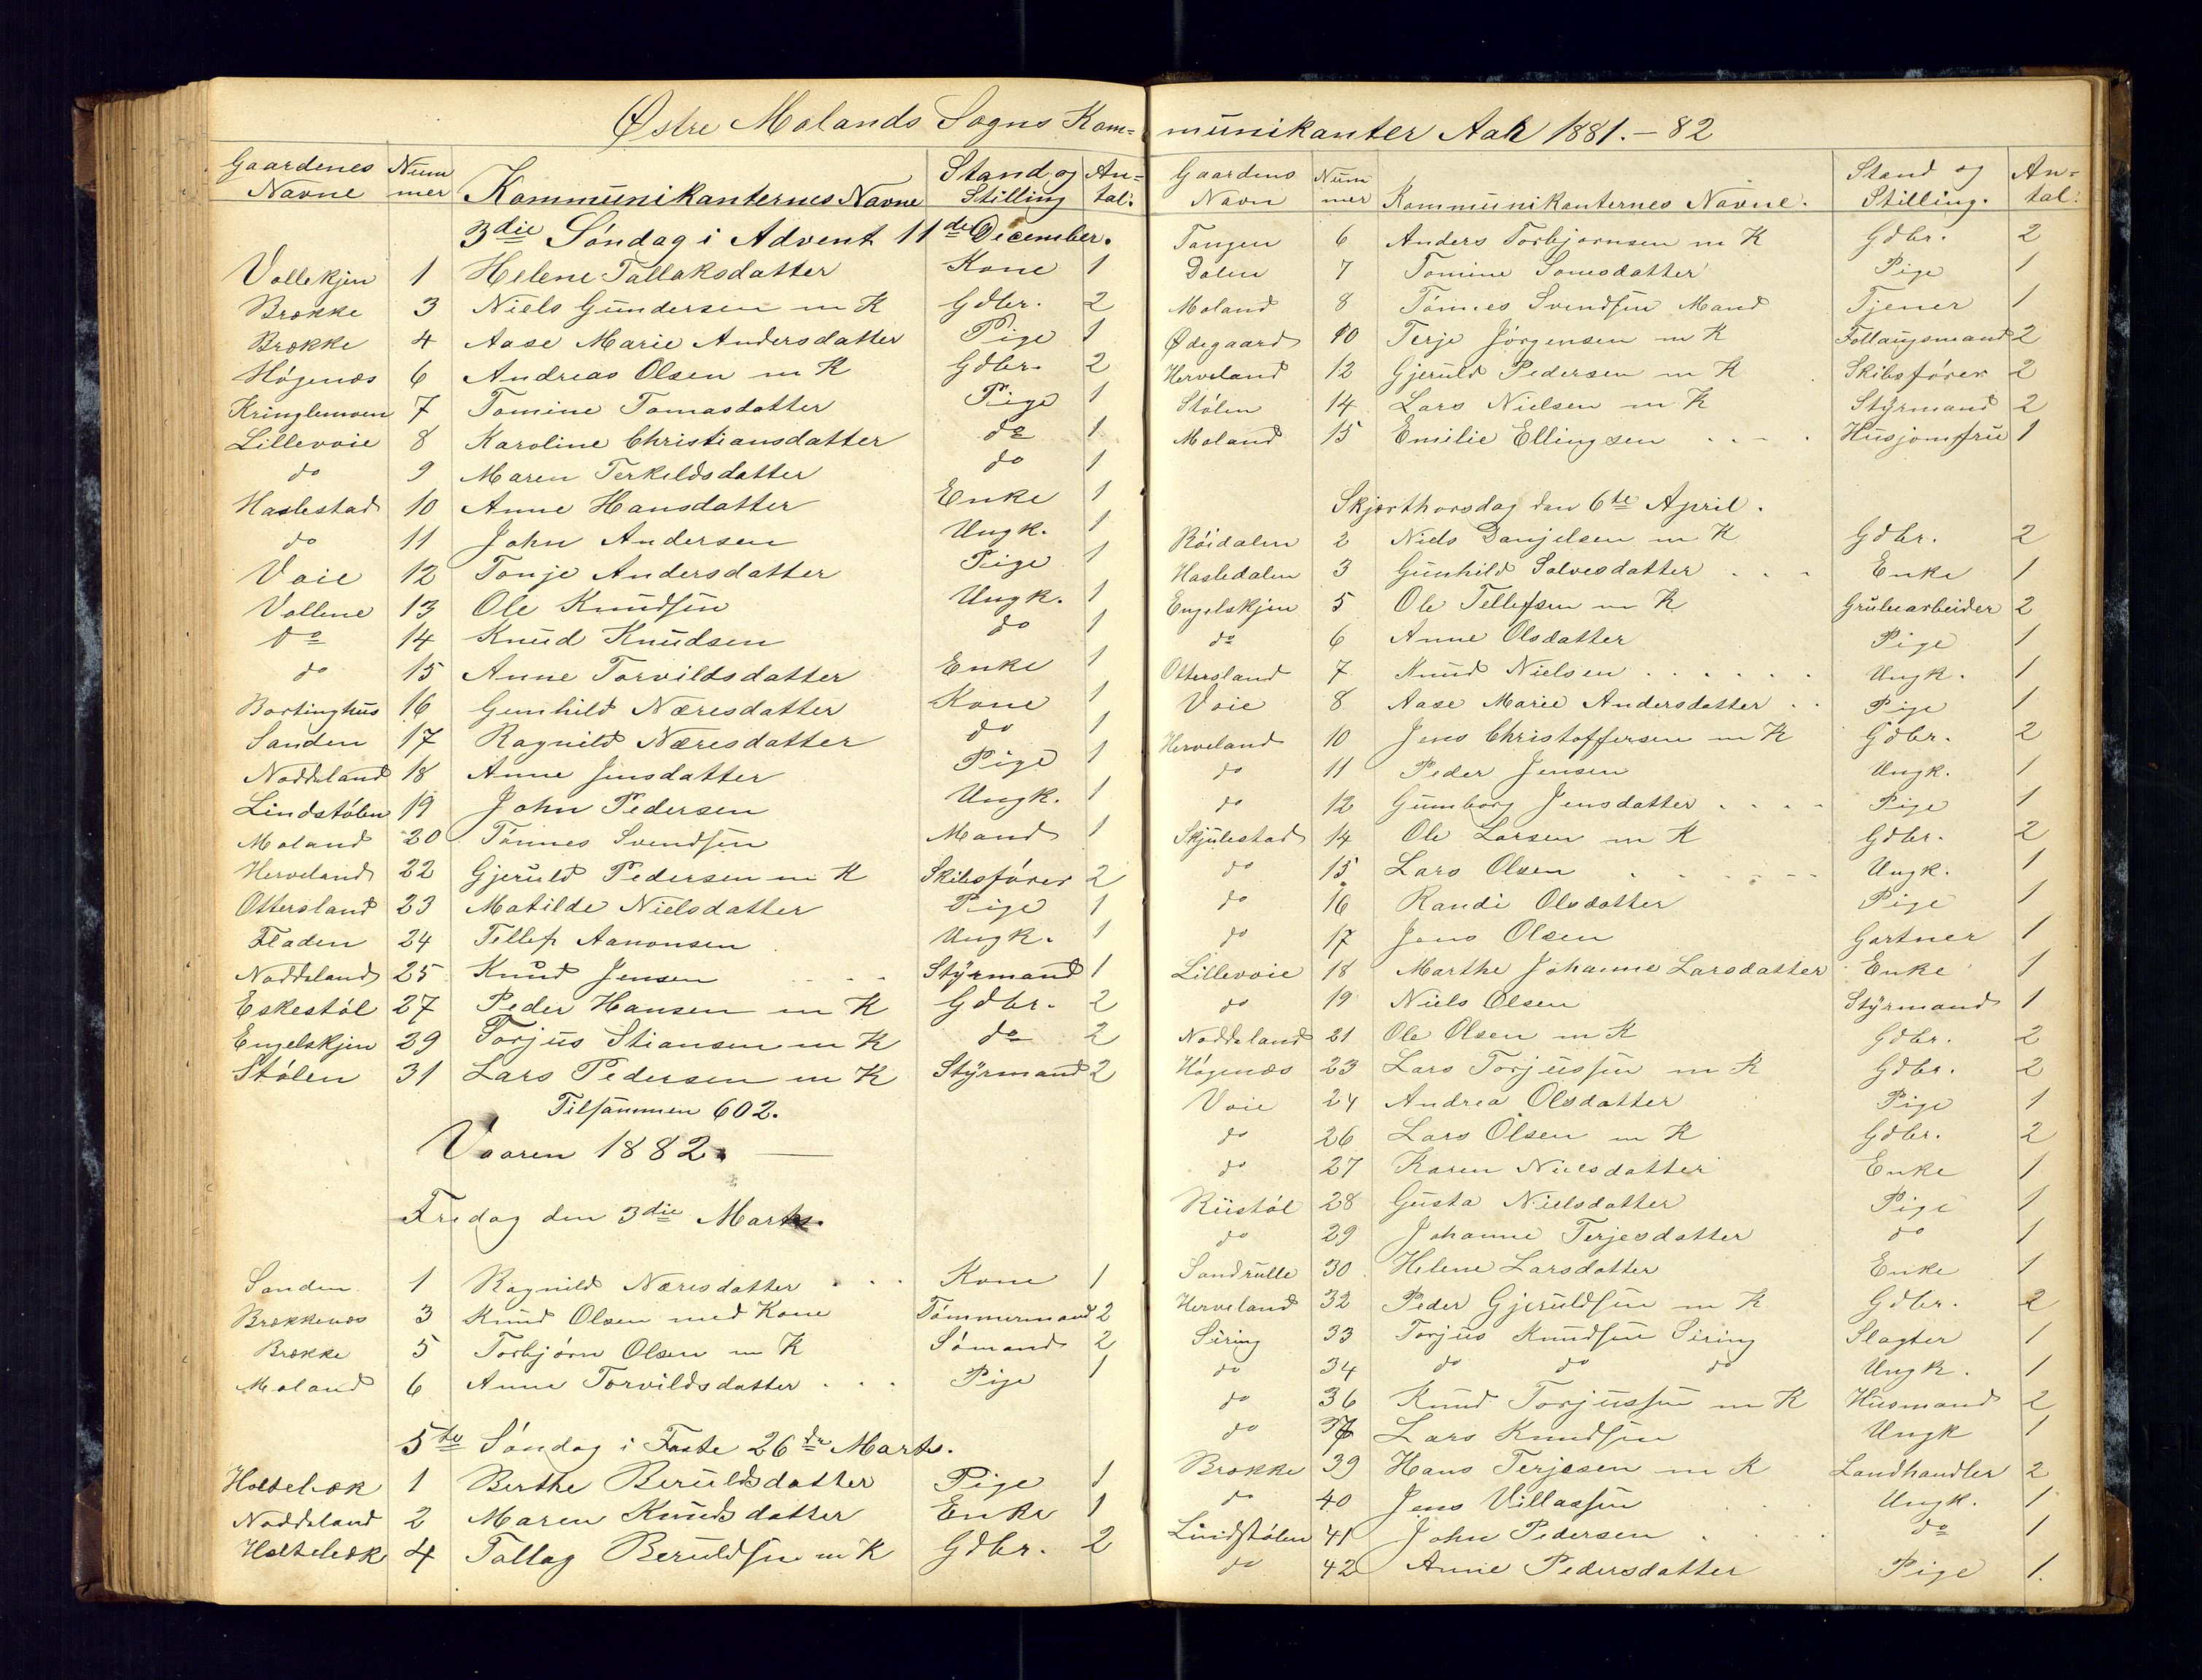 Østre Molands Sogns Kommunikanter Aar 1881.-82
Gaardenes Navne Nummer Kommunikanternes Navne Stand og Stilling An=tal.
3die Søndag i Advent 11de December.
Vollekjen 1 Helene Tallaksdatter Kone 1
Brække 3 Niels Gundersen m K Gdbr. 2
Brække 4 Aase Marie Andersdatter Pige 1
Høgenæs 6 Andreas Olsen m K Gdbr. 2
Kringlemoen 7 Tomine Tomasdatter Pige 1
Lillevoie 8 Karoline Christiansdatter do 1
do 9 Maren Terkildsdatter do 1
Haslestad 10 Anne Hansdatter Enke 1
do 11 John Andersen Ungk. 1
Voie 12 Tonje Andersdatter Pige 1
Vollene 13 Ole Knudsen Ungk. 1
do 14 Knud Knudsen do 1
do 15 Anne Torvildsdatter Enke 1
Bortinghus 16 Gunhild Næresdatter Kone 1
Sanden 17 Ragnild Næresdatter do 1
Noddeland 18 Anne Jensdatter Pige 1
Lindstølen 19 John Pedersen Ungk. 1
Moland 20 Tønnes Svendsen Mand 1
Herveland 22 Gjeruld Pedersen m K Skibsfører 2
Ottersland 23 Matilde Nielsdatter Pige 1
Fladen 24 Tellef Aanonsen Ungk. 1
Noddeland 25 Knud Jensen Styrmand 1
Eskestøl 27 Peder Hansen m K Gdbr. 2
Engelskjen 29 Torjus Stiansen m K do 2
Stølen 31 Lars Pedersen m K Styrmand 2
Tilsammen 602.
Vaaren 1882.
Fredag den 3die Marts.
Sanden 1 Ragnild Næresdatter Kone 1
Brækkenæs 3 Knud Olsen med Kone Tømmermand 2
Brække 5 Torbjørn Olsen m K Sømand 2
Moland 6 Anne Torvildsdatter Pige 1
5te Søndag i Faste 26de Marts.
Holtebæk 1 Berthe Beruldsdatter Pige 1
Noddeland 2 Maren Knudsdatter Enke 1
Holtebæk 4 Tallag Beruldsen m K Gdbr. 2
Gaardens Navn Nummer Kommunikanternes Navne. Stand og Stilling. An=tal.
Tangen 6 Anders Torbjørnsen m K Gdbr. 2
Dalen 7 Tomine Tomesdatter Pige 1
Moland 8 Tønnes Svendsen Mand Tjener 1
Ødegaard 10 Terje Jørgensen m K Follaugsmand 2
Herveland 12 Gjeruld Pedersen m K Skibsfører 2
Stølen 14 Lars Nielsen m K Styrmand 2
Moland 15 Emilie Ellingsen Husjomfru 1
Skjærthorsdag den 6te April.
Røidalen 2 Niels Danjelsen m K Gdbr. 2
Hasledalen 3 Gunhild Salvesdatter Enke 1
Engelskjen 5 Ole Tellefsen m K Grubearbeider 2
do 6 Anne Olsdatter Pige 1
Ottersland 7 Knud Nielsen Ungk. 1
Voie 8 Aase Marie Andersdatter Pige 1
Herveland 10 Jens Christoffersen m K Gdbr. 2
do 11 Peder Jensen Ungk. 1
do 12 Gunborg Jensdatter Pige 1
Skjulestad 14 Ole Larsen m K Gdbr. 2
do 15 Lars Olsen Ungk. 1
do 16 Randi Olsdatter Pige 1
do 17 Jens Olsen Gartner 1
Lillevoie 18 Marthe Johanne Larsdatter Enke 1
do 19 Niels Olsen Styrmand 1
Noddeland 21 Ole Olsen m K Gdbr. 2
Høgenæs 23 Lars Torjussen m K Gdbr. 2
Voie 24 Andrea Olsdatter Pige 1
do 26 Lars Olsen m K Gdbr. 2
do 27 Karen Nielsdatter Enke 1
Riistøl 28 Gusta Nielsdatter Pige 1
do 29 Johanne Terjesdatter do 1
Sandrulle 30 Helene Larsdatter Enke 1
Herveland 32 Peder Gjeruldsen m K Gdbr. 2
Siring 33 Torjus Knudsen Siring Slagter 1
do 34 do do do Ungk. 1
do 36 Knud Torjussen m K Husmand 2
do 37 Lars Knudsen Ungk 1
Brække 39 Hans Terjesen m K Landhandler 2
do 40 Jens Villassen Ungk. 1
Lindstølen 41 John Pedersen do 1
do 42 Anne Pedersdatter Pige 1.